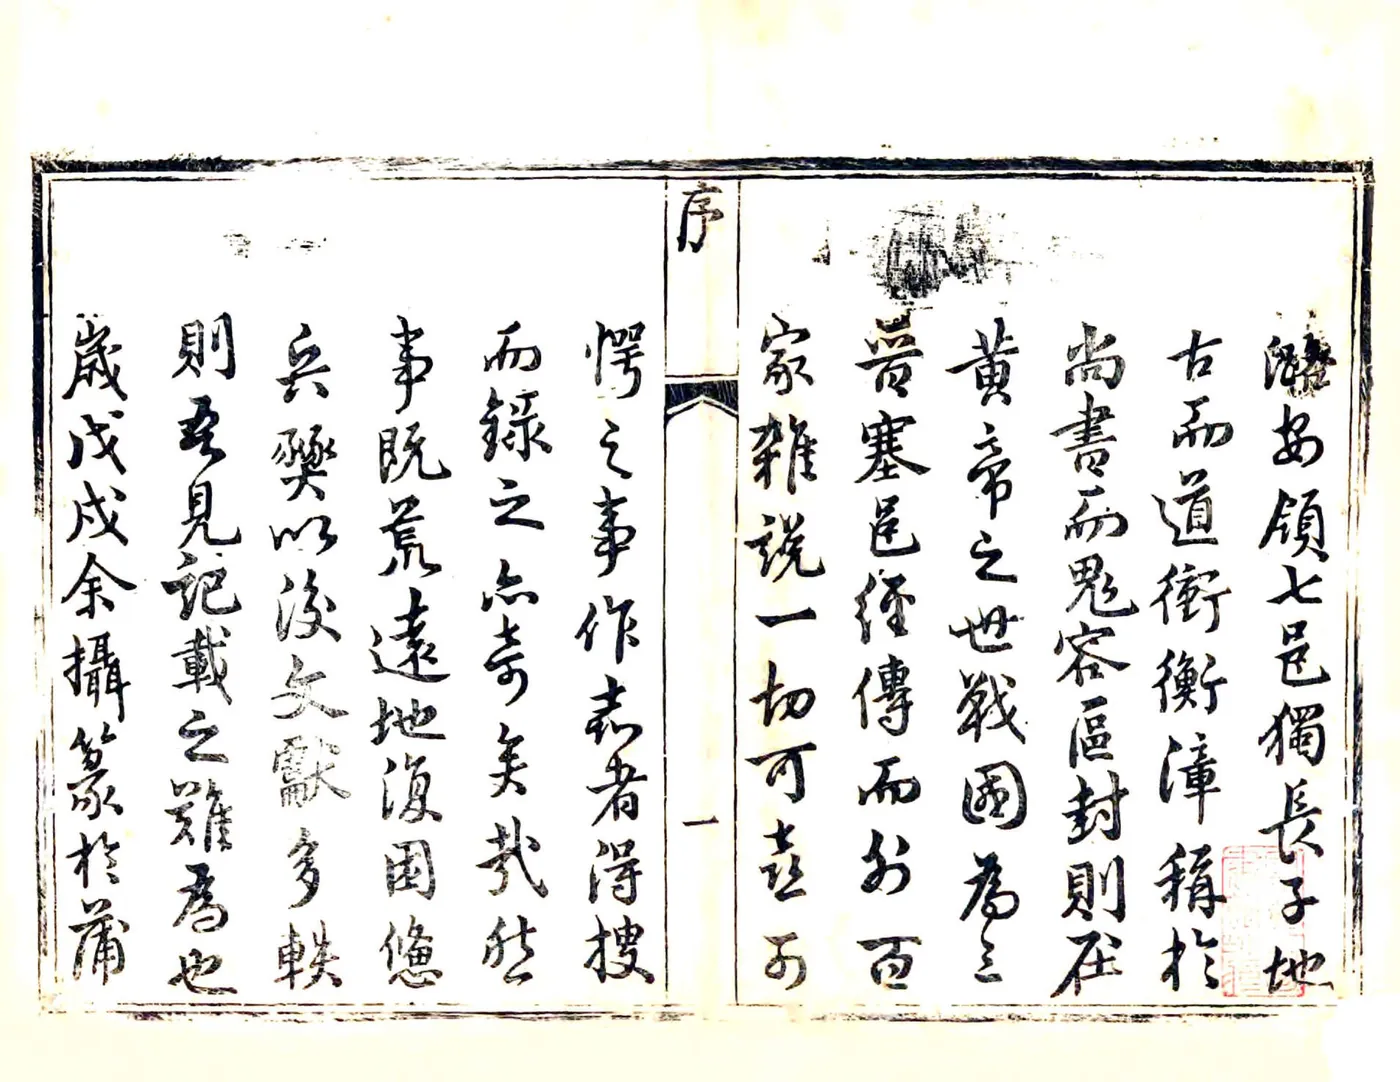 潞安領七邑獨長子地
古而道衝衡漳稱於
尚書而鬼容區封則在
黃帝之世戰國為三
晉塞邑經傳而外百
家雜說一切可喜可
序
一
愕之事作志者得搜
而錄之亦奇矣哉然
事既荒遠地復困憊
兵燹以後文獻多軼
則吾見記載之難為也
歲戊戌余攝篆於蒲